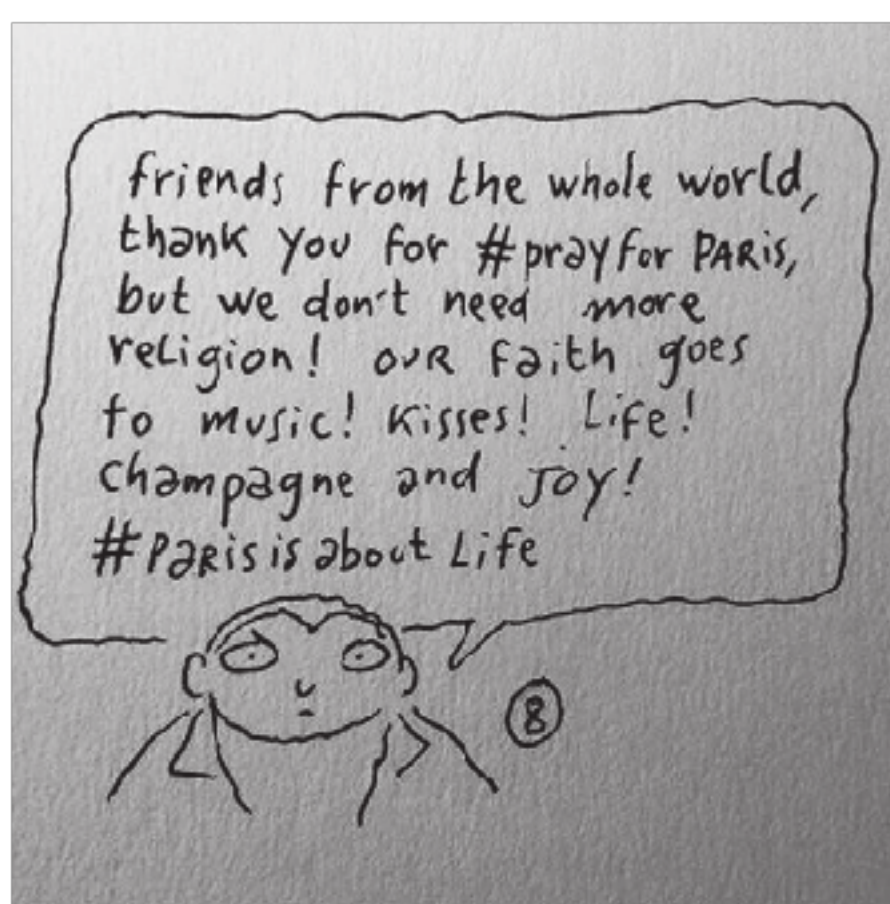 friends from the whole world,
thank you for #prayforPARis,
but we don't need more
religion! OUR faith goes
to music! Kisses! Life!
champagne and Joy!
#PaRisisaboutLife
8